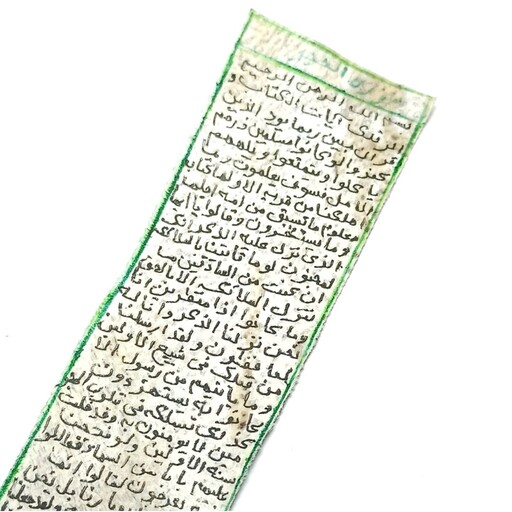 سورة الحجر
بسم الله الرحمن الرحيم
الر تلك ايات الكتاب و
قران مبين ربما يود الذين
كفروا لو كانوا مسلمين ذرهم
ياكلوا ويتمتعوا ويلههم
الامل فسوف يعلمون وما
اهلكنا من قرية الا ولها كتاب
معلوم ما تسبق من امة اجلها
وما يستخرون وقالوا يا ايها
الذي نزل عليه الذكر انك
لمجنون لو ما تاتينا بالملائكة
ان كنت من الصادقين ما
ننزل الملائكة الا بالحق
وما كانوا اذا منظرين انا
نحن نزلنا الذكر وانا له
لحافظون ولقد ارسلنا
من قبلك في شيع الاولين
وما ياتيهم من رسول الا
كانوا به يستهزؤون
كذلك نسلكه في قلوب
مين لا يومنون به وقد خلت
سنة الاولين ولو فتحنا
عليهم بابا من السماء فظلوا
فيه يعرجون لقالوا انما